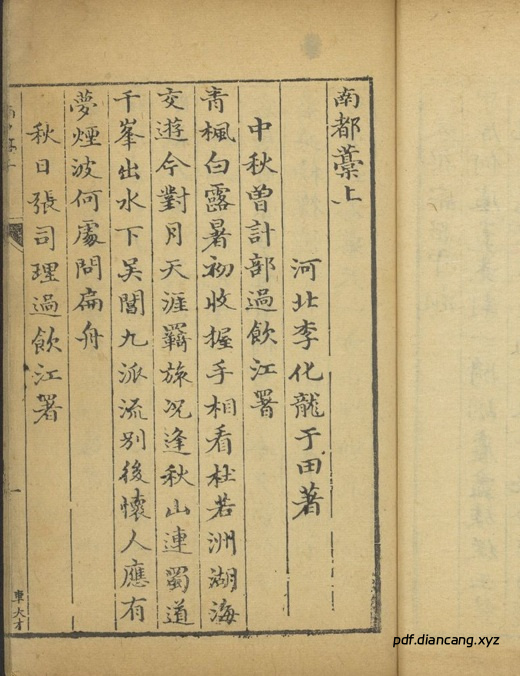 南都藁上
河北李化龍于田著
中秋曾計部過飲江署
青楓白露暑初收握手相看杜若洲湖海
交遊今對月天涯羈旅况逢秋山連蜀道
千峯出水下吳閶九派流别後懷人應有
夢煙波何處問扁舟
秋日張司理過飲江署
一
車大才
pdf.diancang.xyz